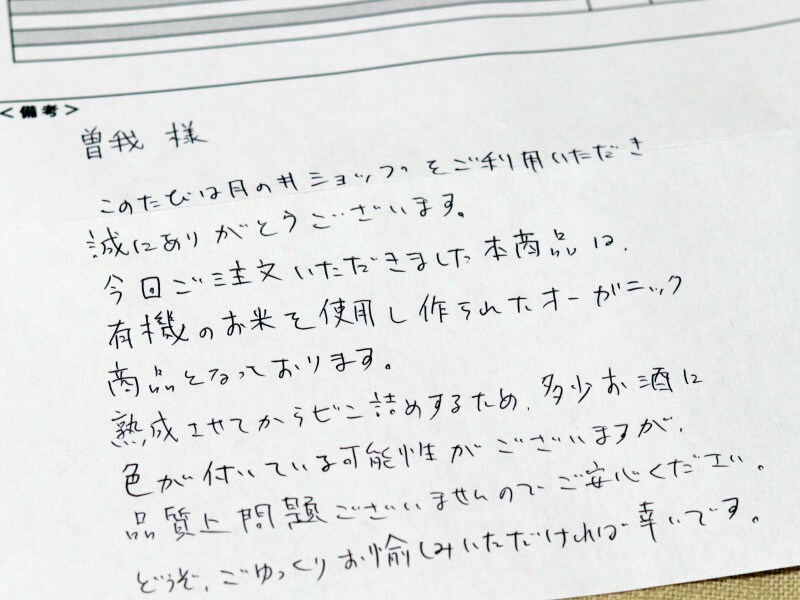 <備考>
曽我 様
このたびは月の井ショップをご利用いただき
誠にありがとうございます。
今回ご注文いただきました本商品は、
有機のお米を使用し作られたオーガニック
商品となっております。
熟成させてからビン詰めするため、多少お酒に
色が付いている可能性がございますが、
品質上問題ございませんのでご安心ください。
どうぞ、ごゆっくりお愉しみいただければ幸いです。